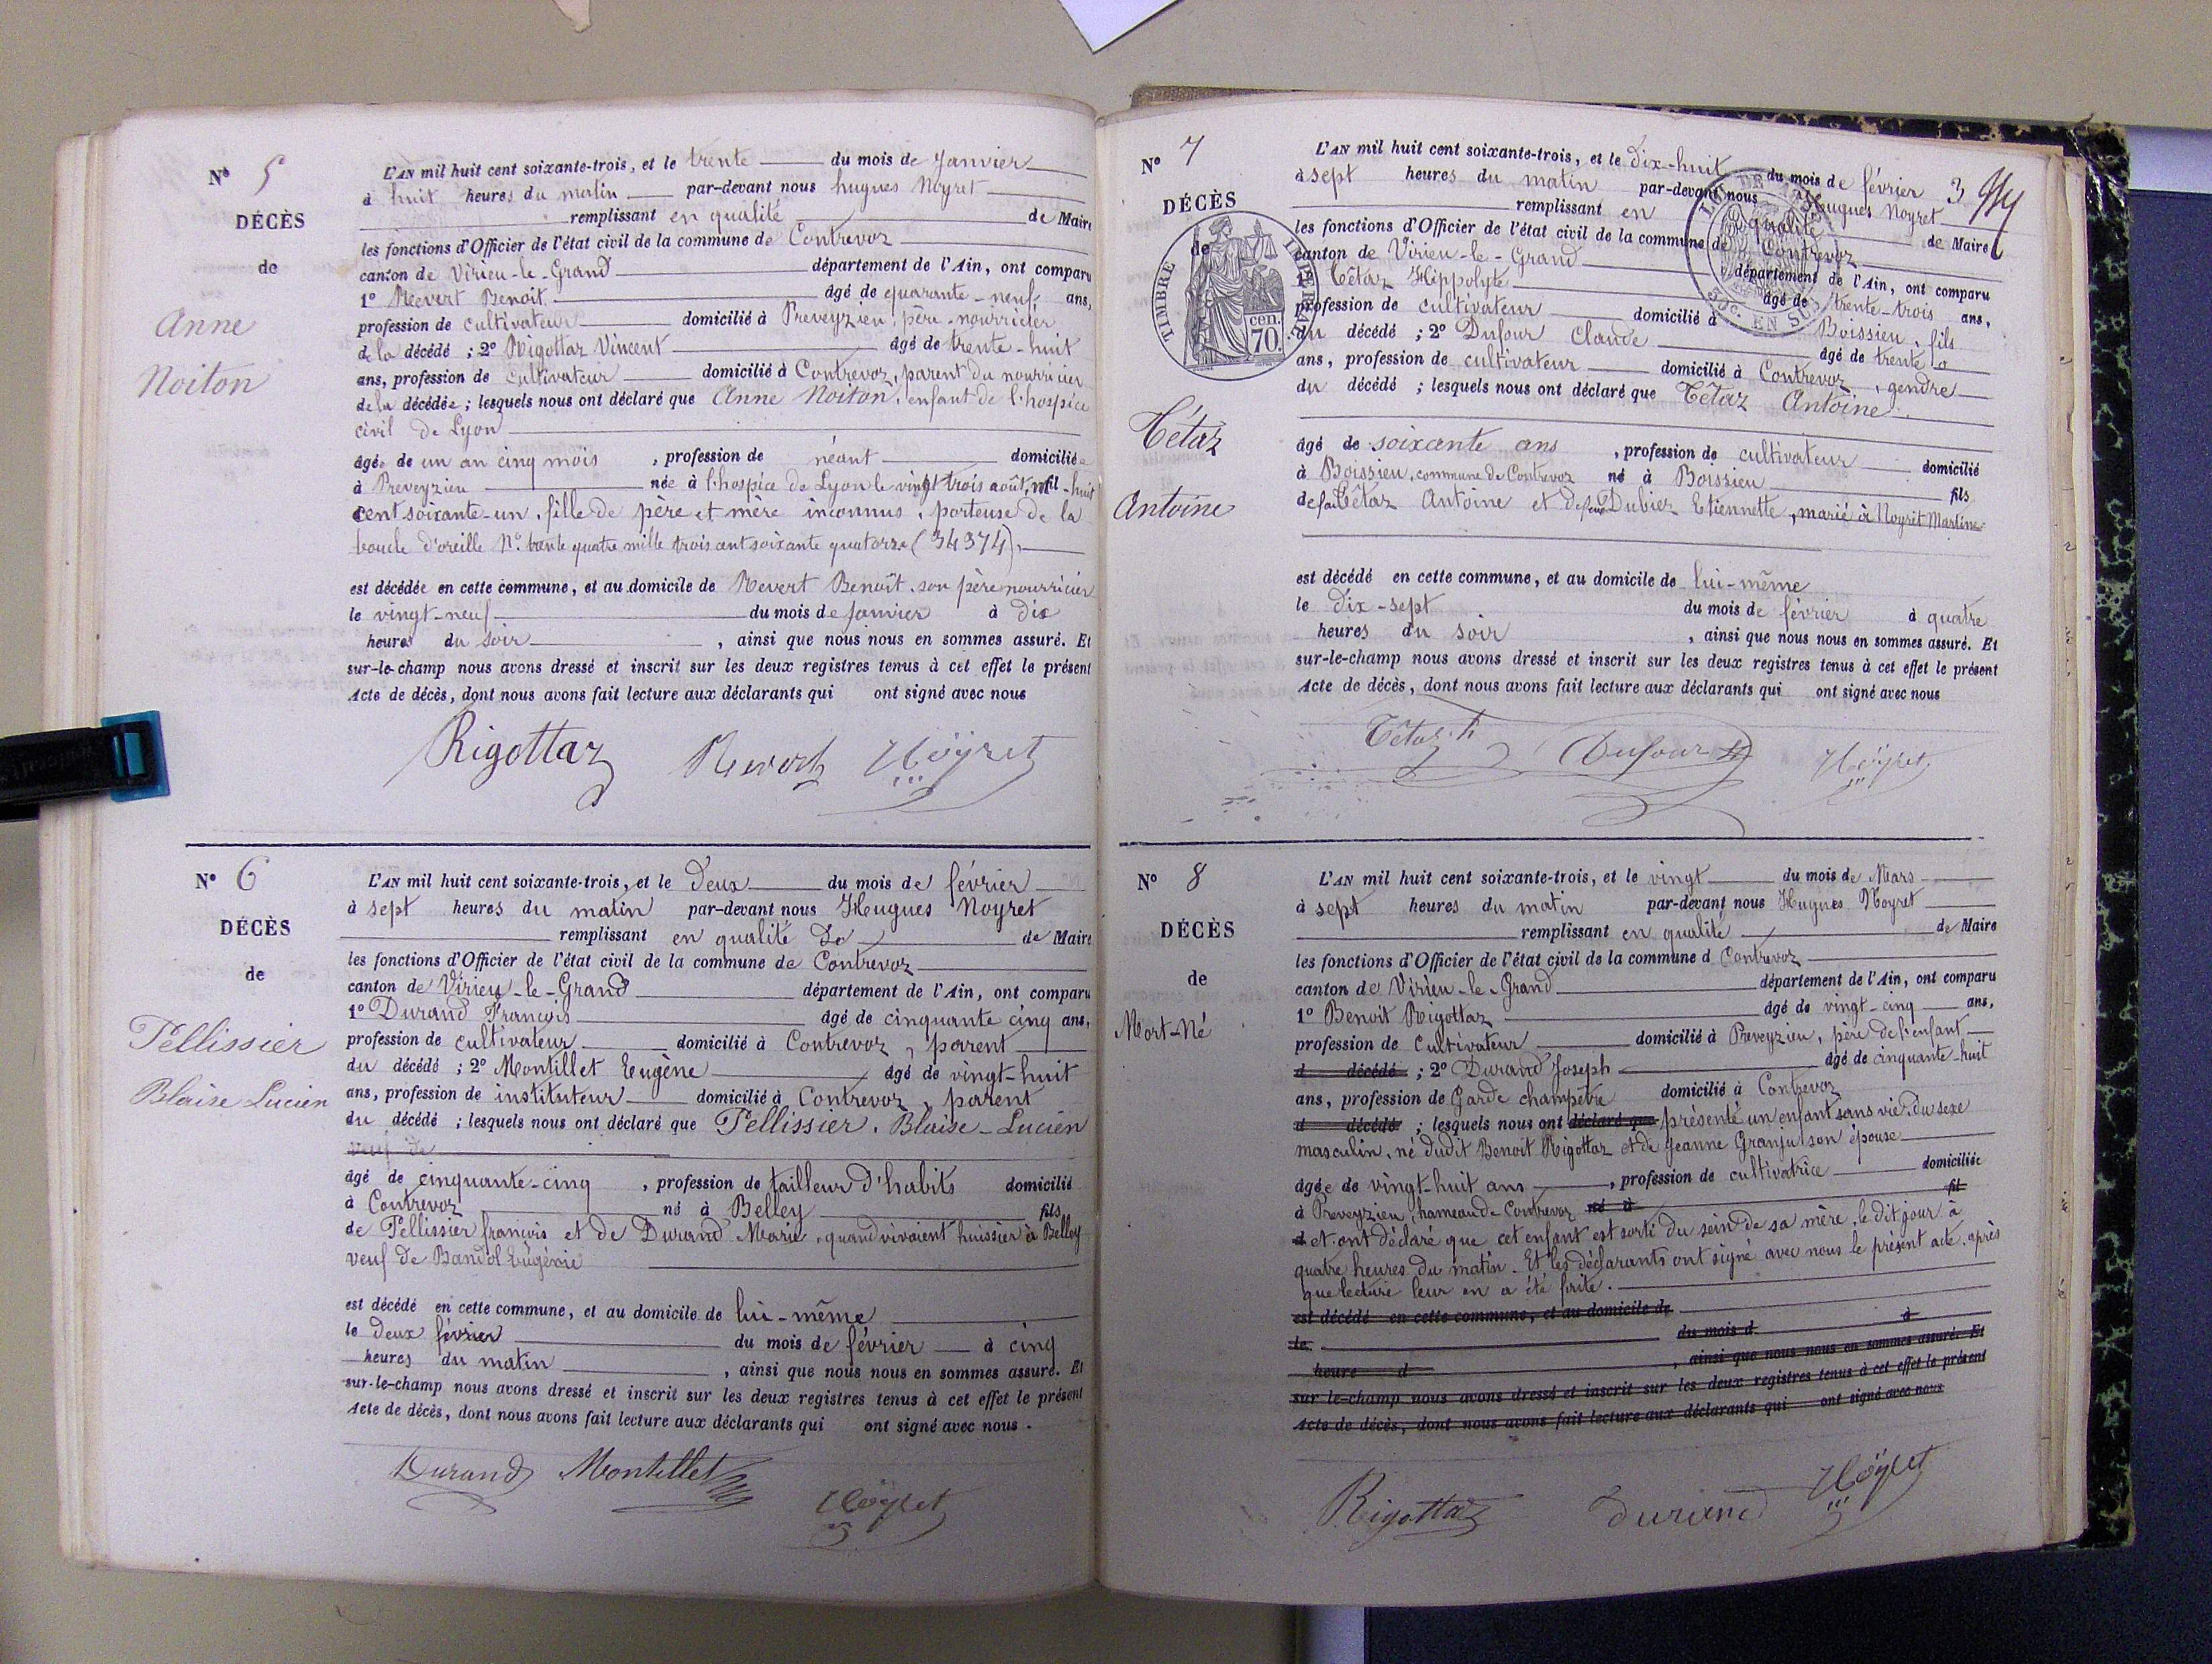 N° 5
DÉCÈS
de
Anne
Noiton
L'AN mil huit cent soixante-trois, et le trente du mois de Janvier
à huit heures du matin par-devant nous hugues Noyret
remplissant en qualité de Maire
les fonctions d'Officier de l'état civil de la commune de Contrevoz
canton de Virieu-le-Grand département de l'Ain, ont comparu
1° Revert Benoît âgé de quarante-neuf ans,
profession de cultivateur domicilié à Preveyzieu, père-nourricier
de la décédé ; 2° Rigottaz Vincent âgé de trente-huit
ans, profession de cultivateur domicilié à Contrevoz, parent du nourricier
de la décédée ; lesquels nous ont déclaré que Anne Noiton, enfant de l'hospice
civil de Lyon
âgée de un an cinq mois , profession de néant domiciliée
à Preveyzieu née à l'hospice de Lyon le vingt trois août, mil-huit
cent soixante-un, fille de père et mère inconnus, porteuse de la
boucle d'oreille N° trente quatre mille trois cent soixante quatorze (34374),
est décédée en cette commune, et au domicile de Revert Benoît, son père nourricier
le vingt-neuf du mois de Janvier à dix
heures du soir , ainsi que nous nous en sommes assuré. Et
sur-le-champ nous avons dressé et inscrit sur les deux registres tenus à cet effet le présent
Acte de décès, dont nous avons fait lecture aux déclarants qui ont signé avec nous
Rigottaz Revert Noyret
N° 6
DÉCÈS
de
Pellissier
Blaise Lucien
L'AN mil huit cent soixante-trois, et le deux du mois de février
à sept heures du matin par-devant nous Hugues Noyret
remplissant en qualité de de Maire
les fonctions d'Officier de l'état civil de la commune de Contrevoz
canton de Virieu-le-Grand département de l'Ain, ont comparu
1° Durand François âgé de cinquante cinq ans,
profession de cultivateur domicilié à Contrevoz, parent
du décédé ; 2° Montillet Eugène âgé de vingt-huit
ans, profession de instituteur domicilié à Contrevoz, parent
du décédé ; lesquels nous ont déclaré que Pellissier, Blaise-Lucien
veuf de
âgé de cinquante-cinq , profession de tailleur d'habits domicilié
à Contrevoz né à Belley fils
de Pellissier françois et de Durand Marie, quand vivaient huissier à Belley
veuf de Bandol Eugénie
est décédé en cette commune, et au domicile de lui-même
le deux février du mois de février à cinq
heures du matin , ainsi que nous nous en sommes assuré. Et
sur-le-champ nous avons dressé et inscrit sur les deux registres tenus à cet effet le présent
Acte de décès, dont nous avons fait lecture aux déclarants qui ont signé avec nous.
Durand Montillet
Noyret
N° 7
DÉCÈS
de
TIMBRE IMPERIAL
cen.
70.
Tétaz
Antoine
L'AN mil huit cent soixante-trois, et le dix-huit du mois de février 3
à sept heures du matin par-devant nous Hugues Noyret
remplissant en qualité de Maire
les fonctions d'Officier de l'état civil de la commune de Contrevoz
canton de Virieu-le-Grand département de l'Ain, ont comparu
EN SUS
1° Tétaz Hippolyte âgé de trente-trois ans,
profession de cultivateur domicilié à Boissieu, fils
du décédé ; 2° Dufour Claude âgé de trente
ans, profession de cultivateur domicilié à Contrevoz, gendre
du décédé ; lesquels nous ont déclaré que Tétaz Antoine
âgé de soixante ans , profession de cultivateur domicilié
à Boissieu, commune de Contrevoz né à Boissieu fils
de feu Tétaz Antoine et de feue Dubiez Etiennette, marié à Noyret Martine
est décédé en cette commune, et au domicile de lui-même
le dix-sept du mois de février à quatre
heures du soir , ainsi que nous nous en sommes assuré. Et
sur-le-champ nous avons dressé et inscrit sur les deux registres tenus à cet effet le présent
Acte de décès, dont nous avons fait lecture aux déclarants qui ont signé avec nous
Tétaz h Dufour Noyret
N° 8
DÉCÈS
de
Mort-Né
L'AN mil huit cent soixante-trois, et le vingt du mois de Mars
à sept heures du matin par-devant nous Hugues Noyret
remplissant en qualité de Maire
les fonctions d'Officier de l'état civil de la commune d Contrevoz
canton de Virieu-le-Grand département de l'Ain, ont comparu
1° Benoit Rigottaz âgé de vingt-cinq ans,
profession de Cultivateur domicilié à Preveyzieu, père de l'enfant
d décédé ; 2° Durand Joseph âgé de cinquante-huit
ans, profession de Garde champêtre domicilié à Contrevoz
d décédé ; lesquels nous ont déclaré que présenté un enfant sans vie, du sexe
masculin, né dudit Benoit Rigottaz et de Jeanne Granju son épouse
âgée de vingt-huit ans , profession de cultivatrice domiciliée
à Preveyzieu, hameau de Contrevoz né à fil
d et ont déclaré que cet enfant est sorti du sein de sa mère, le dit jour à
quatre heures du matin. Et les déclarants ont signé avec nous le présent acte, après
que lecture leur en a été faite.
est décédé en cette commune, et au domicile de
le du mois d à
heure d , ainsi que nous nous en sommes assuré. Et
sur-le-champ nous avons dressé et inscrit sur les deux registres tenus à cet effet le présent
Acte de décès, dont nous avons fait lecture aux déclarants qui ont signé avec nous
Rigottaz durand Noyret